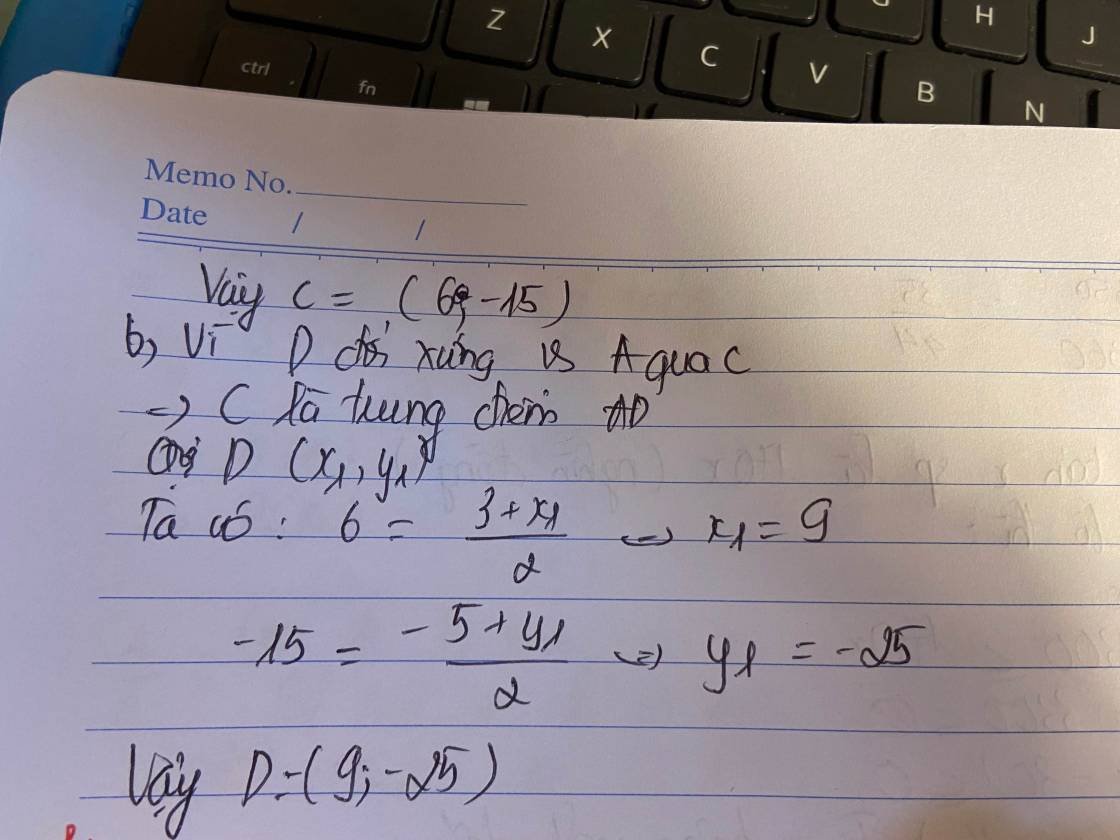 Z X C V B H J N
ctrl fn
Memo No.
Date / /
Vậy C = (6; -15)
b, Vì D đối xứng vs A qua C
=> C là trung điểm AD
Gọi D (x₁, y₁)
Ta có: 6 = (3 + x₁)/2 => x₁ = 9
-15 = (-5 + y₁)/2 => y₁ = -25
Vậy D = (9; -25)